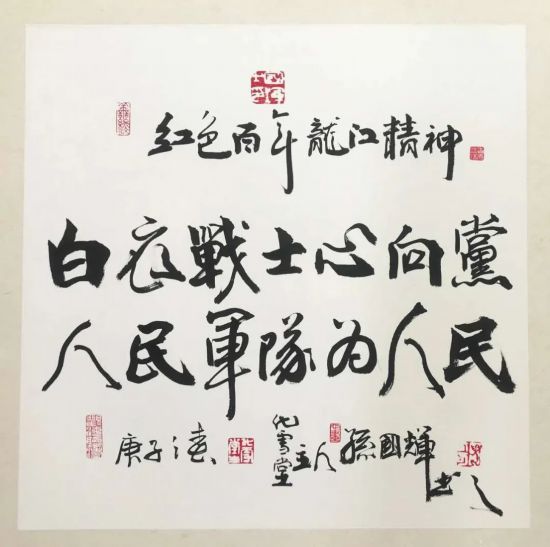 红色百年龍江精神
白衣戰士心向黨
人民軍隊为人民
庚子春 化雪堂主人 孫國輝书之